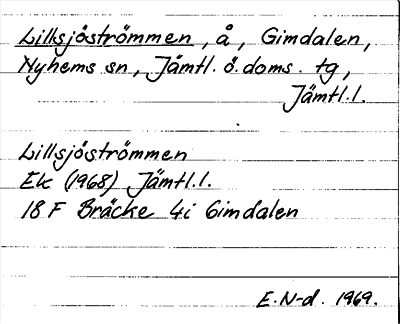 Lillsjöströmmen, å, Gimdalen,
Nyhems sn, Jämtl. ö. doms. tg,
Jämtl.l.
Lillsjöströmmen
Ek (1968) Jämtl.l.
18 F Bräcke 4i Gimdalen
E. N-d. 1969.